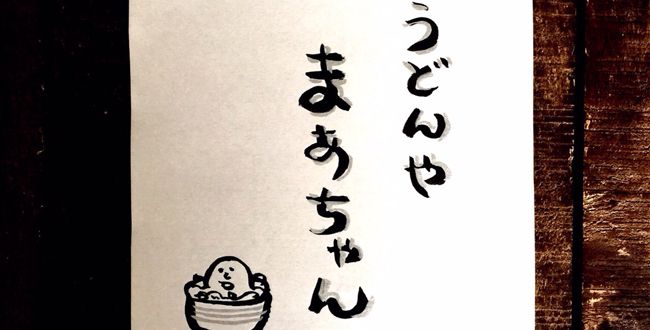 うどんや
まあちゃん